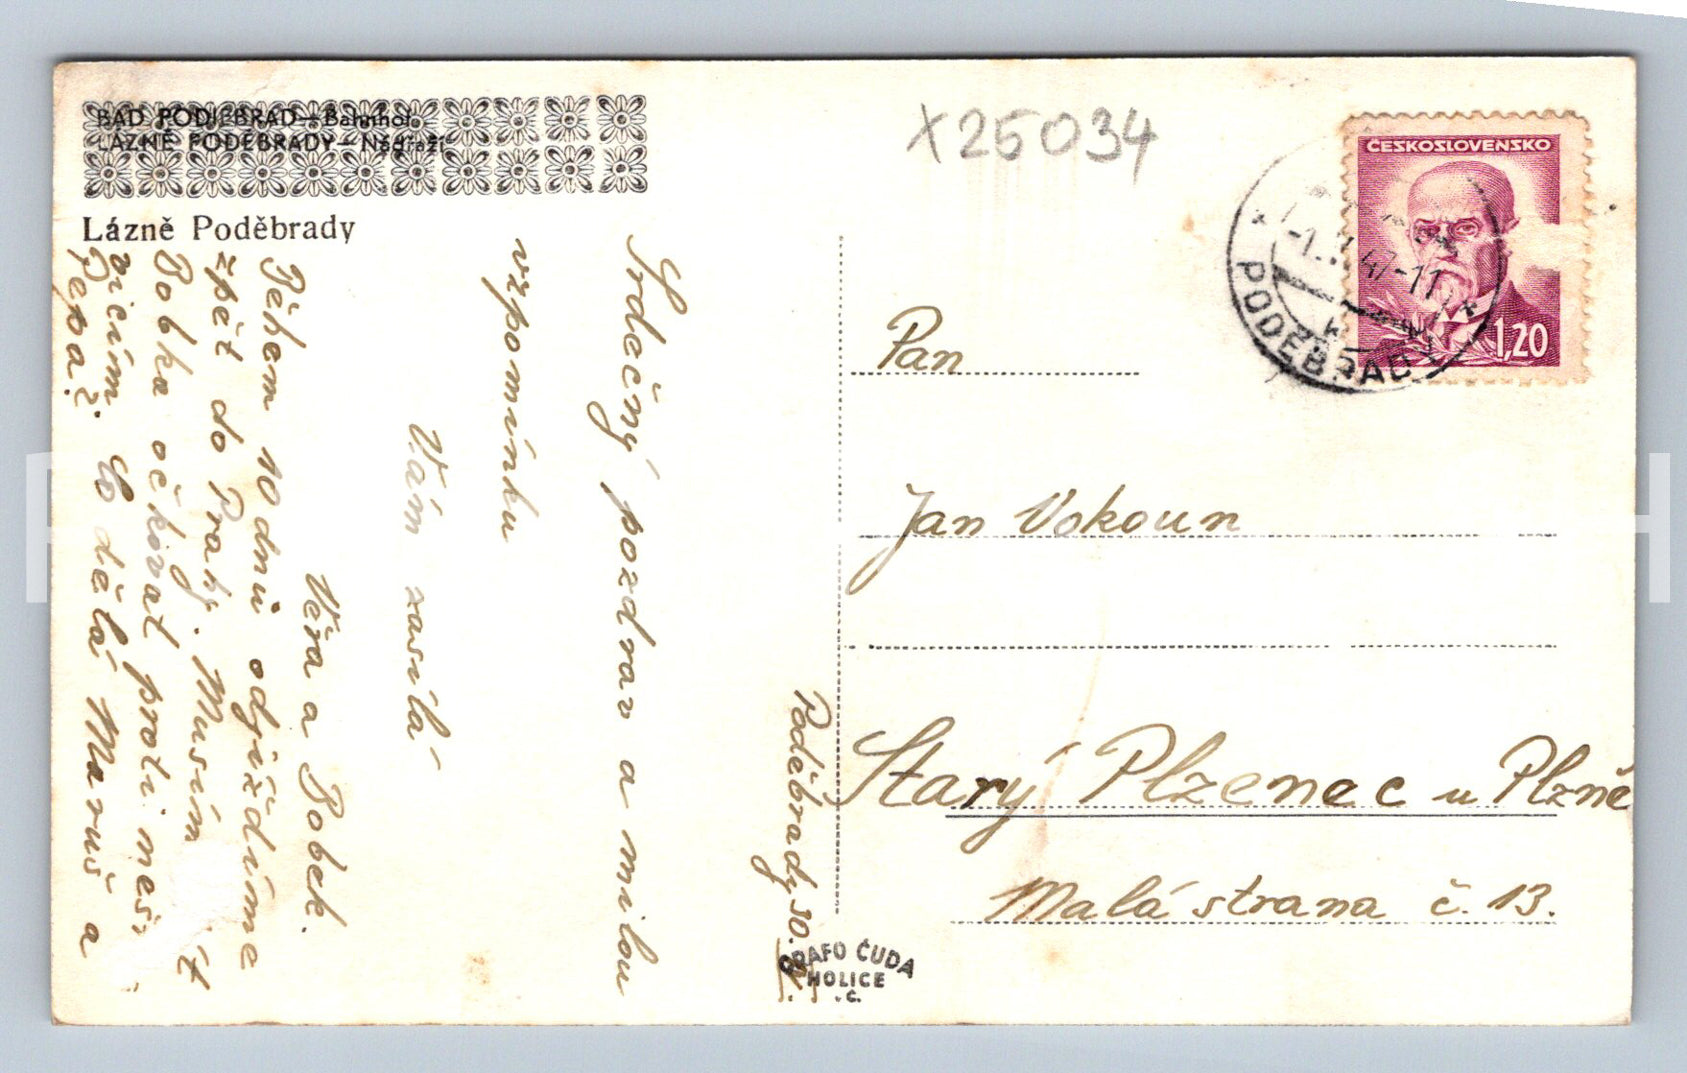 BAD PODIEBRAD—Bahnhof.
LÁZNĚ PODĚBRADY—Nádraží
Lázně Poděbrady
X25034
ČESKOSLOVENSKO
1,20
47-11
PODĚBRADY
Srdečný pozdrav a milou
vzpomínku
Vám zasílá
Věra a Bobek.
Během 10 dnů odjíždíme
zpět do Prahy. Musím
Bobka očkovat proti neš-
vičím. Co dělá Maruš a
Pepa?
Poděbrady 30.
Pan
Jan Vokoun
Starý Plzenec u Plzně
Malá strana č. 13.
GRAFO ČUDA
HOLICE